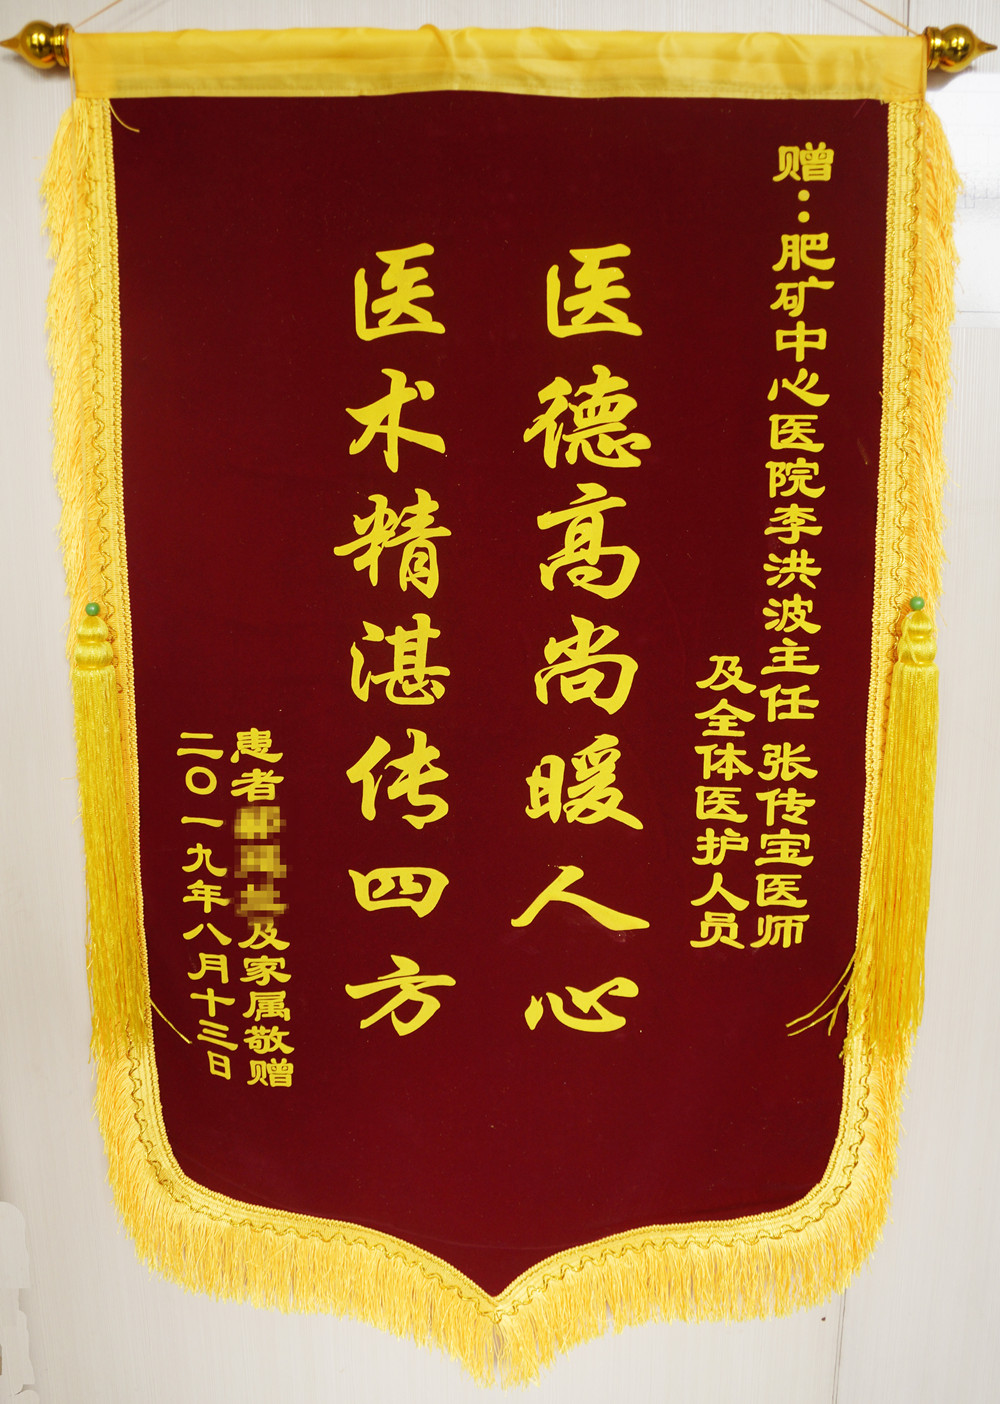 赠：肥矿中心医院李洪波主任 张传宝医师
及全体医护人员
医德高尚暖人心
医术精湛传四方
患者 及家属敬赠
二〇一九年八月十三日